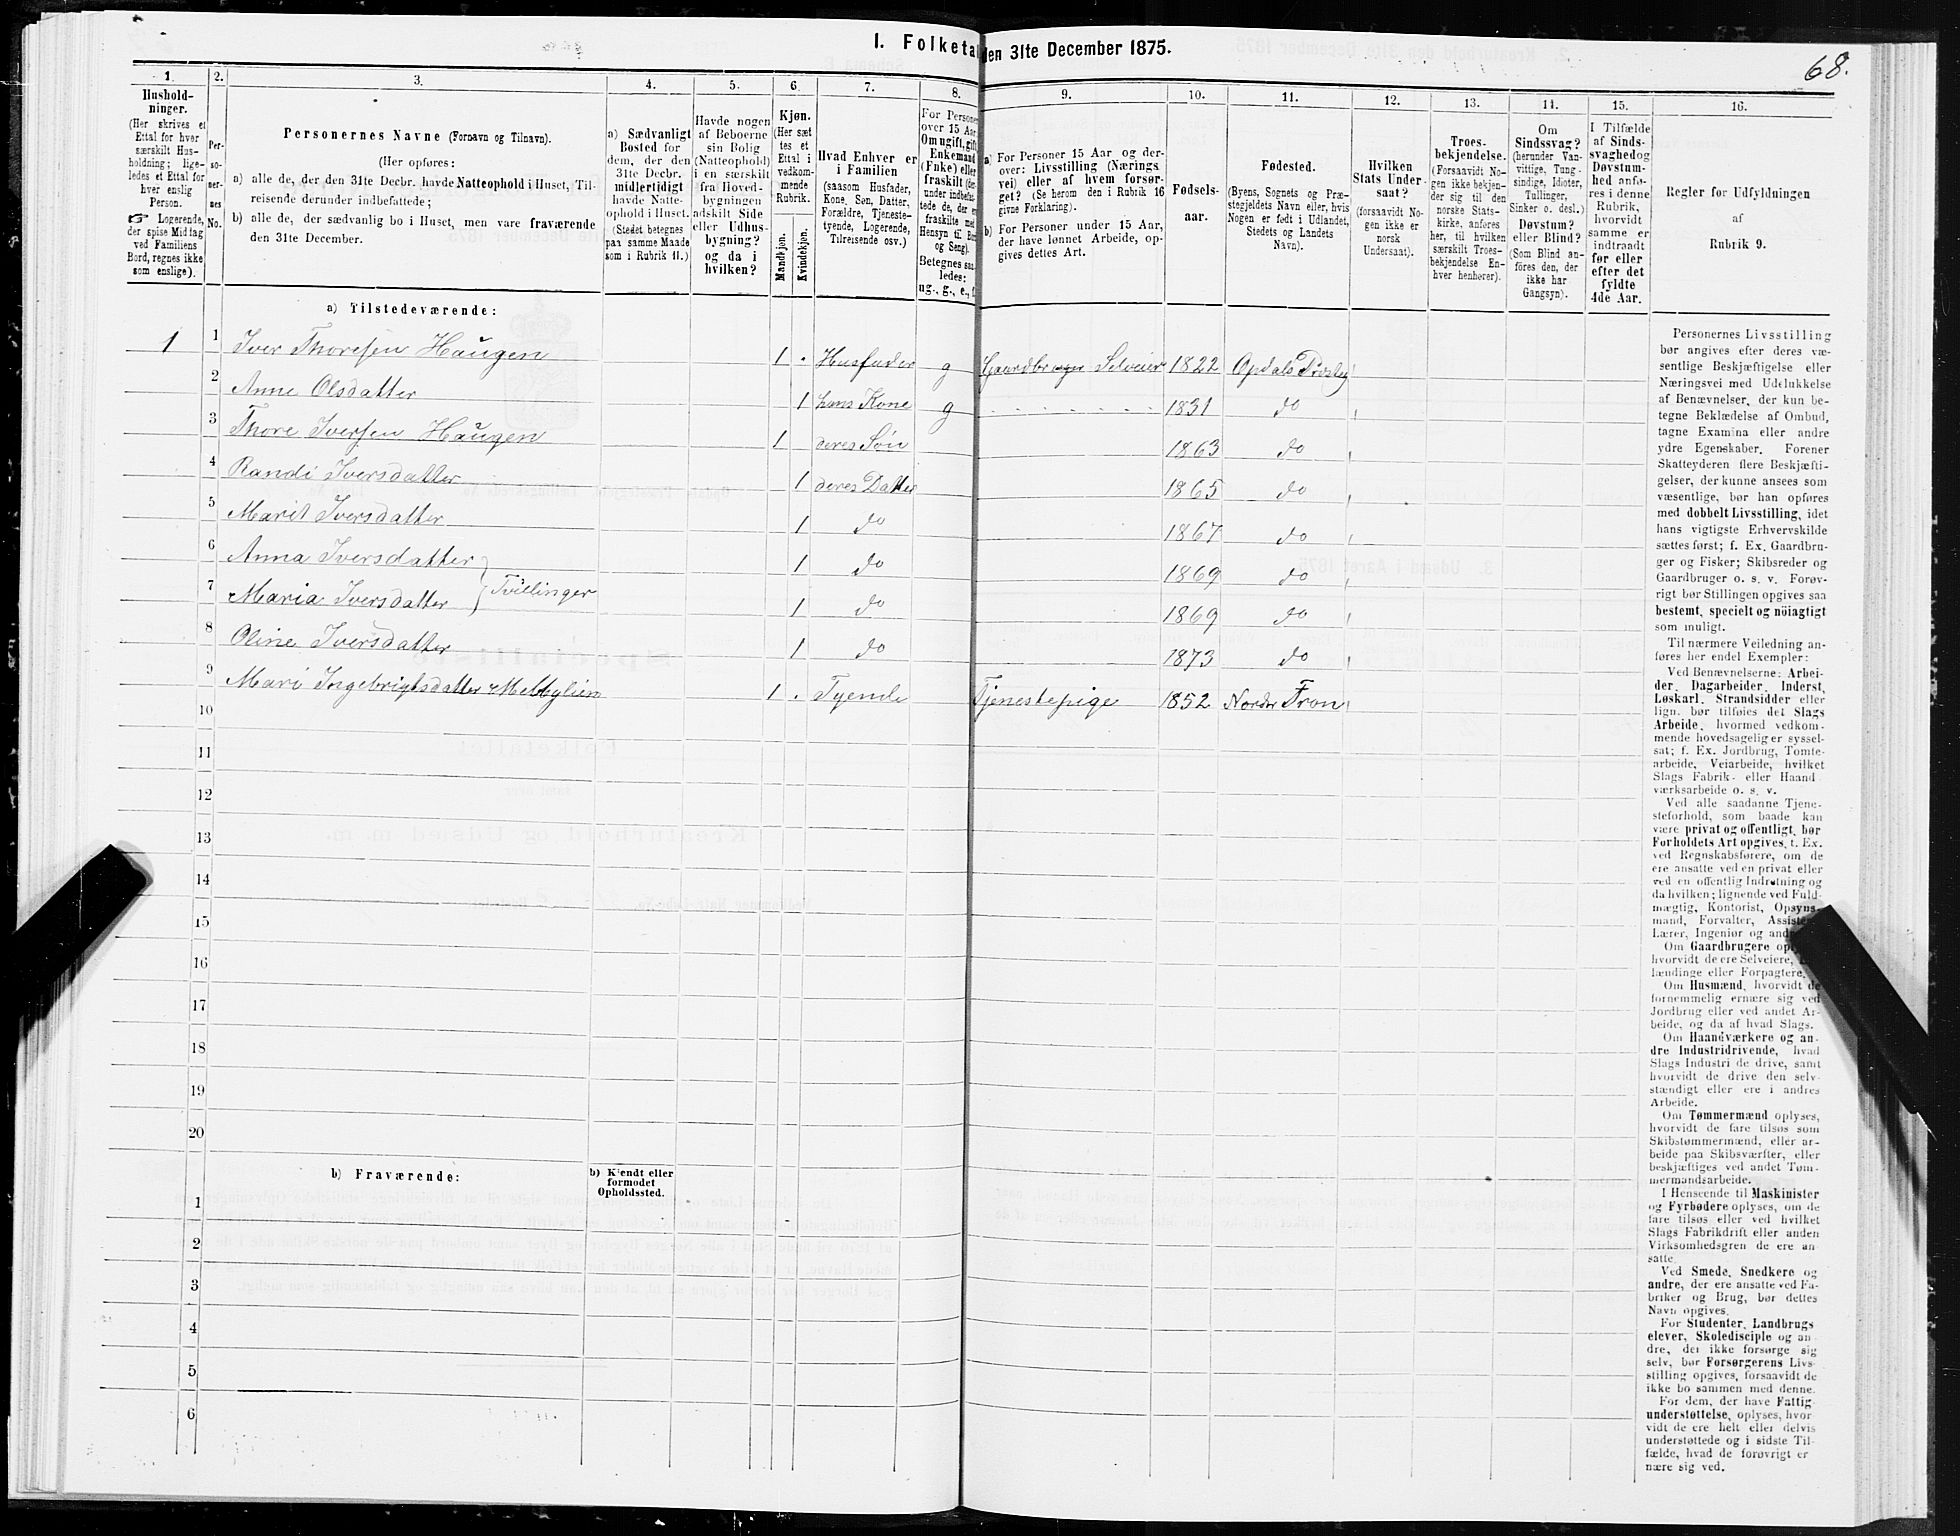 1. Folketal den 31te December 1875.
68.
1. 2. 3. 4. 5. 6. 7. 8. 9. 10. 11. 12. 13. 14. 15. 16.
Hushold-
ninger.
(Her skrives et
Ettal for hver
særskilt Hus-
holdning; lige-
ledes et Ettal for
hver enslig
Person.
☞ Logerende,
der spise Middag
ved Familiens
Bord, regnes ikke
som enslige).
Per-
so-
ner-
nes
No.
Personernes Navne (Fornavn og Tilnavn).
(Her opføres:
a) alle de, der den 31te Decbr. havde Natteophold i Huset, Til-
reisende derunder indbefattede;
b) alle de, der sædvanlig bo i Huset, men vare fraværende
den 31te December.
a) Sædvanligt
Bosted for
dem, der den
31te Decbr.
midlertidigt
havde Natte-
ophold i Huset.
(Stedet betegnes
paa samme Maade
som i Rubrik 11.)
Havde nogen
af Beboerne
sin Bolig
(Natteophold)
i en særskilt
fra Hoved-
bygningen
adskilt Side
eller Udhus-
bygning?
og da i
hvilken?
Kjøn.
(Her sæt
tes et
Ettal i
vedkom-
mende
Rubrik.
Mandkjøn.
Kvindekjøn.
Hvad Enhver er
i Familien
(saasom Husfader,
Kone, Søn, Datter,
Forældre, Tjeneste-
tyende, Logerende,
Tilreisende osv.)
For Personer
over 15 Aar:
Om ugift, gift,
Enkemand
(Enke) eller
fraskilt
Betegnes saa-
ledes:
ug., g., e., f.
a) For Personer 15 Aar og der-
over: Livsstilling (Nærings
vei) eller af hvem forsør-
get? (Se herom den i Rubrik 16
givne Forklaring).
b) For Personer under 15 Aar,
der have lønnet Arbeide, op-
gives dettes Art.
Fødsels-
aar.
Fødested.
(Byens, Sognets og Præ-
stegjeldets Navn eller, hvis
Nogen er født i Udlandet,
Stedets og Landets
Navn).
Hvilken
Stats Under-
saat?
(forsaavidt No-
gen ikke er
norsk
Undersaat).
Troes-
bekjendelse.
(Forsaavidt No-
gen ikke bekjen-
der sig til den
norske Stats-
kirke, anføres
her, til hvilken
særskilt Troes-
bekjendelse En-
hver henhører).
Om
Sindssvag?
(herunder Van-
vittige, Tung-
sindige, Idioter,
Tullinger,
Sinker o. desl.)
Døvstum?
eller Blind?
(Som Blind an-
føres den, der
ikke har
Gangsyn).
I Tilfælde
af Sinds-
svaghed og
Døvstum-
hed anfø-
res i denne
Rubrik,
hvorvidt
samme er
indtraadt
før eller
efter det
fyldte
4de Aar.
Regler før Udfyldningen
af
Rubrik 9.
a) Tilstedeværende:
1 1 Iver Thoresen Haugen 1 . Husfader g Gaardbruger Selveier 1822 Opdals Præstegj
2 Anne Olsdatter 1 hans Kone g 1831 do
3 Thore Iversen Haugen 1 deres Søn 1863 do
4 Randi Iversdatter 1 deres Datter 1865 do
5 Marit Iversdatter 1 do 1867 do
6 Anna Iversdatter 1 do 1869 do
7 Maria Iversdatter } Tvillinger 1 do 1869 do
8 Oline Iversdatter 1 do 1873 do
9 Mari Ingebrigtsdatter Melbylien 1 . Tyende Tjenestepige 1852 Nordre Fron
10
11
12
13
14
15
16
17
18
19
20
b) Fraværende:
b) Kjendt eller
formodet
Opholdssted.
1
2
3
4
5
6
Personernes Livsstilling
bør angives efter deres væ-
sentlige Beskjæftigelse eller
Næringsvei med Udelukkelse
af Benævnelser, der kun be-
tegne Beklædelse af Ombud,
tagne Examina eller andre
ydre Egenskaber. Forener
Skatteyderen flere Beskjæfti-
gelser, der kunne ansees som
væsentlige, bør han opføres
med dobbelt Livsstilling, idet
hans vigtigste Erhvervskilde
sættes først; f. Ex. Gaardbru-
ger og Fisker; Skibsreder og
Gaardbruger o. s. v. Forøv-
rigt bør Stillingen opgives saa
bestemt, specielt og nöiagtigt
som muligt.
Til nærmere Veiledning an-
føres her endel Exempler:
Ved Benævnelserne: Arbei-
der, Dagarbeider, Inderst,
Løskarl, Strandsidder eller
lign. bør tilføies det Slags
Arbeide, hvormed vedkom-
mende hovedsagelig er syssel-
sat; f. Ex. Jordbrug, Tomte-
arbeide, Veiarbeide, hvilket
Slags Fabrik- eller Haand
værksarbeide o. s. v.
Ved alle saadanne Tjene-
steforhold, som baade kan
være privat og offentligt, bør
Forholdets Art opgives, t. Ex.
ved Regnskabsførere, om de
ere ansatte ved en privat eller
ved en offentlig Indretning og
da hvilken; lignende ved Fuld-
mægtig, Kontorist, Opsyns-
mand, Forvalter, Assistent,
Lærer, Ingeniør og andre.
Om Gaardbrugere oplyses,
hvorvidt de ere Selveiere, Lei-
lændinge eller Forpagtere.
Om Husmænd, hvorvidt de
fornemmelig ernære sig ved
Jordbrug eller ved andet Ar-
beide, og da af hvad Slags.
Om Haandværkere og an-
dre Industridrivende, hvad
Slags Industri de drive, samt
hvorvidt de drive den selv-
stændigt eller ere i andres
Arbeide.
Om Tømmermænd oplyses,
hvorvidt de fare tilsøs som
Skibstømmermænd, eller ar-
beide paa Skibsværfter, eller
beskjæftiges ved andet Tøm-
mermandsarbeide.
I Henseende til Maskinister
og Fyrbødere oplyses, om de
fare tilsøs eller ved hvilket
Slags Fabrikdrift eller anden
Virksomhedsgren de ere an-
satte.
Ved Smede, Snedkere og
andre, der ere ansatte ved Fa-
briker og Brug, bør dettes
Navn opgives.
For Studenter, Landbrugs
elever, Skoledisciple og an-
dre, der ikke forsørge sig
selv, bør Forsørgerens Livs-
stilling opgives, forsaavidt de
ikke bo sammen med denne.
For dem, der have Fattig-
understøttelse, oplyses, hvor
vidt de ere helt eller delvis
understøttede og i sidste Til-
fælde, hvad de forøvrigt er
nære sig ved.